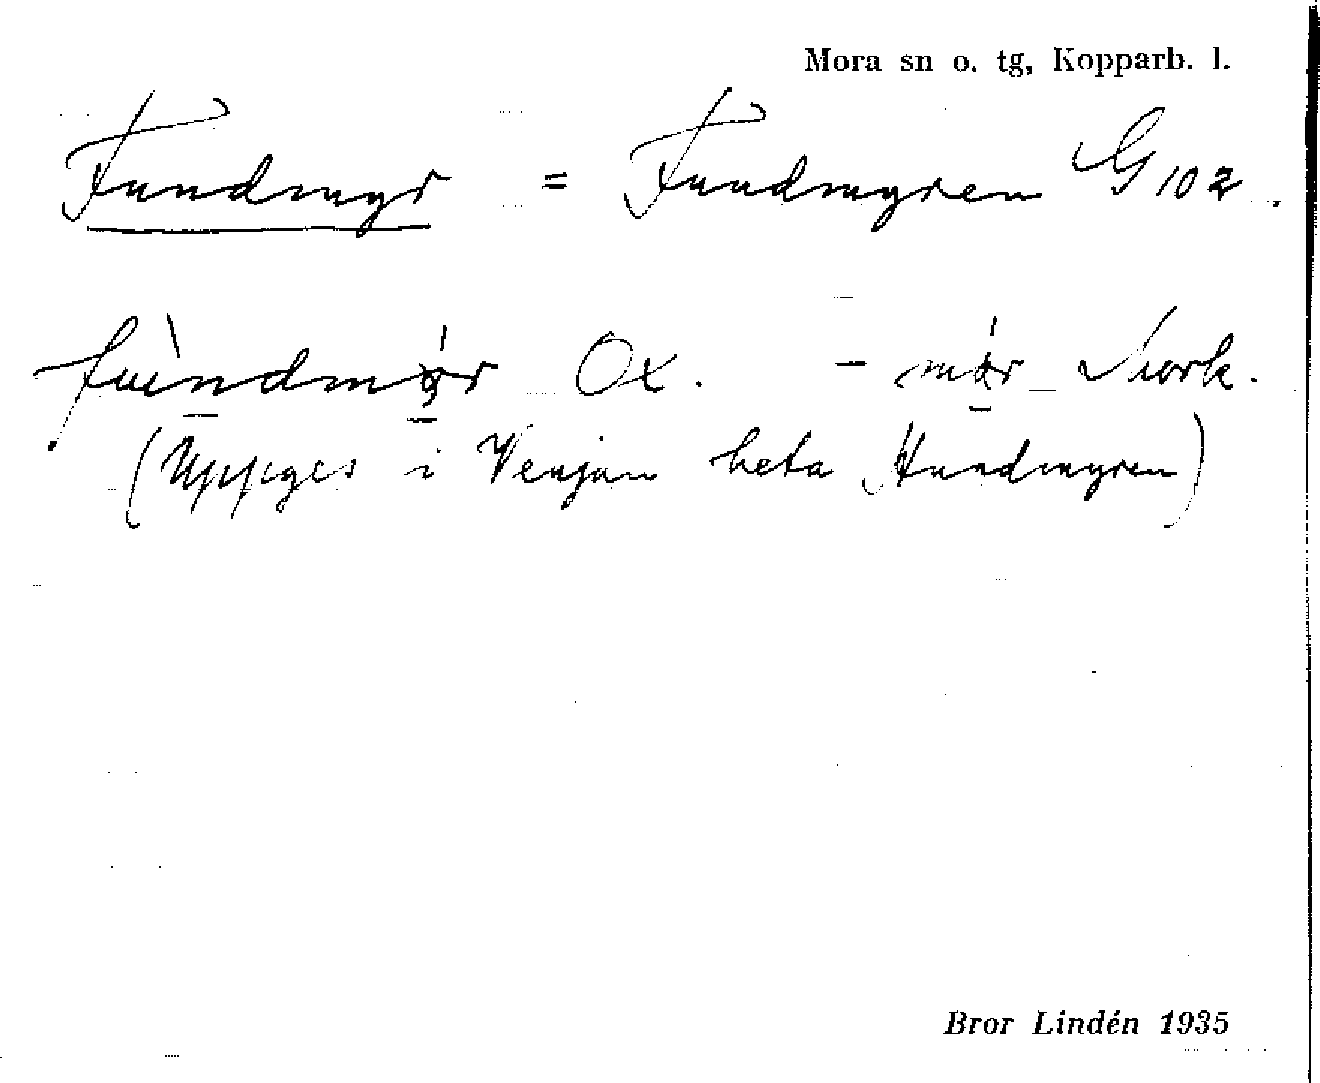 Mora sn o. tg, Kopparb. l.
Fundmyr = Fundmyren G 102.
Ox.
(Uppges i Venjan heta Hundmyren)
Bror Lindén 1935